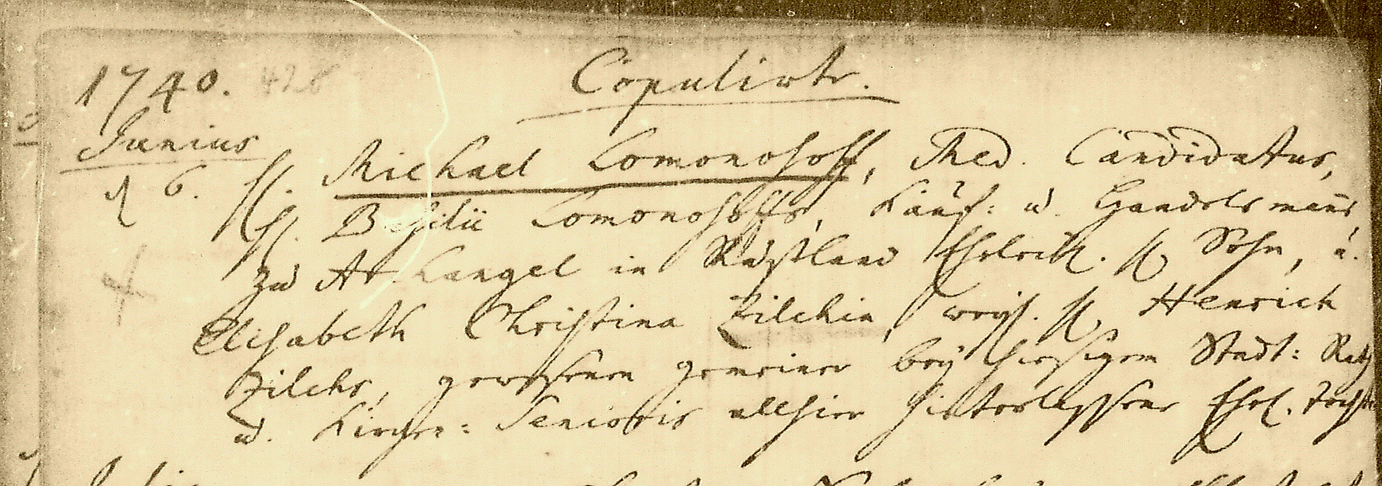 1740. 428 Copulirte.
Junius
d 6. H. Michael Lomonosoff, Med. Candidatus,
H. Basilii Lomonosoffs, Kauf: u. Handelsmanns
zu Archangel in Rußland Ehelich. H. Sohn, u.
Elisabeth Christina Zilchin, weyl. H. Henrich
Zilchs, gewesenen gemeiner bey hiesigem Stadt: Rath
u. Kirchen: Senioris allhier hinterlassene Ehel. Tochter